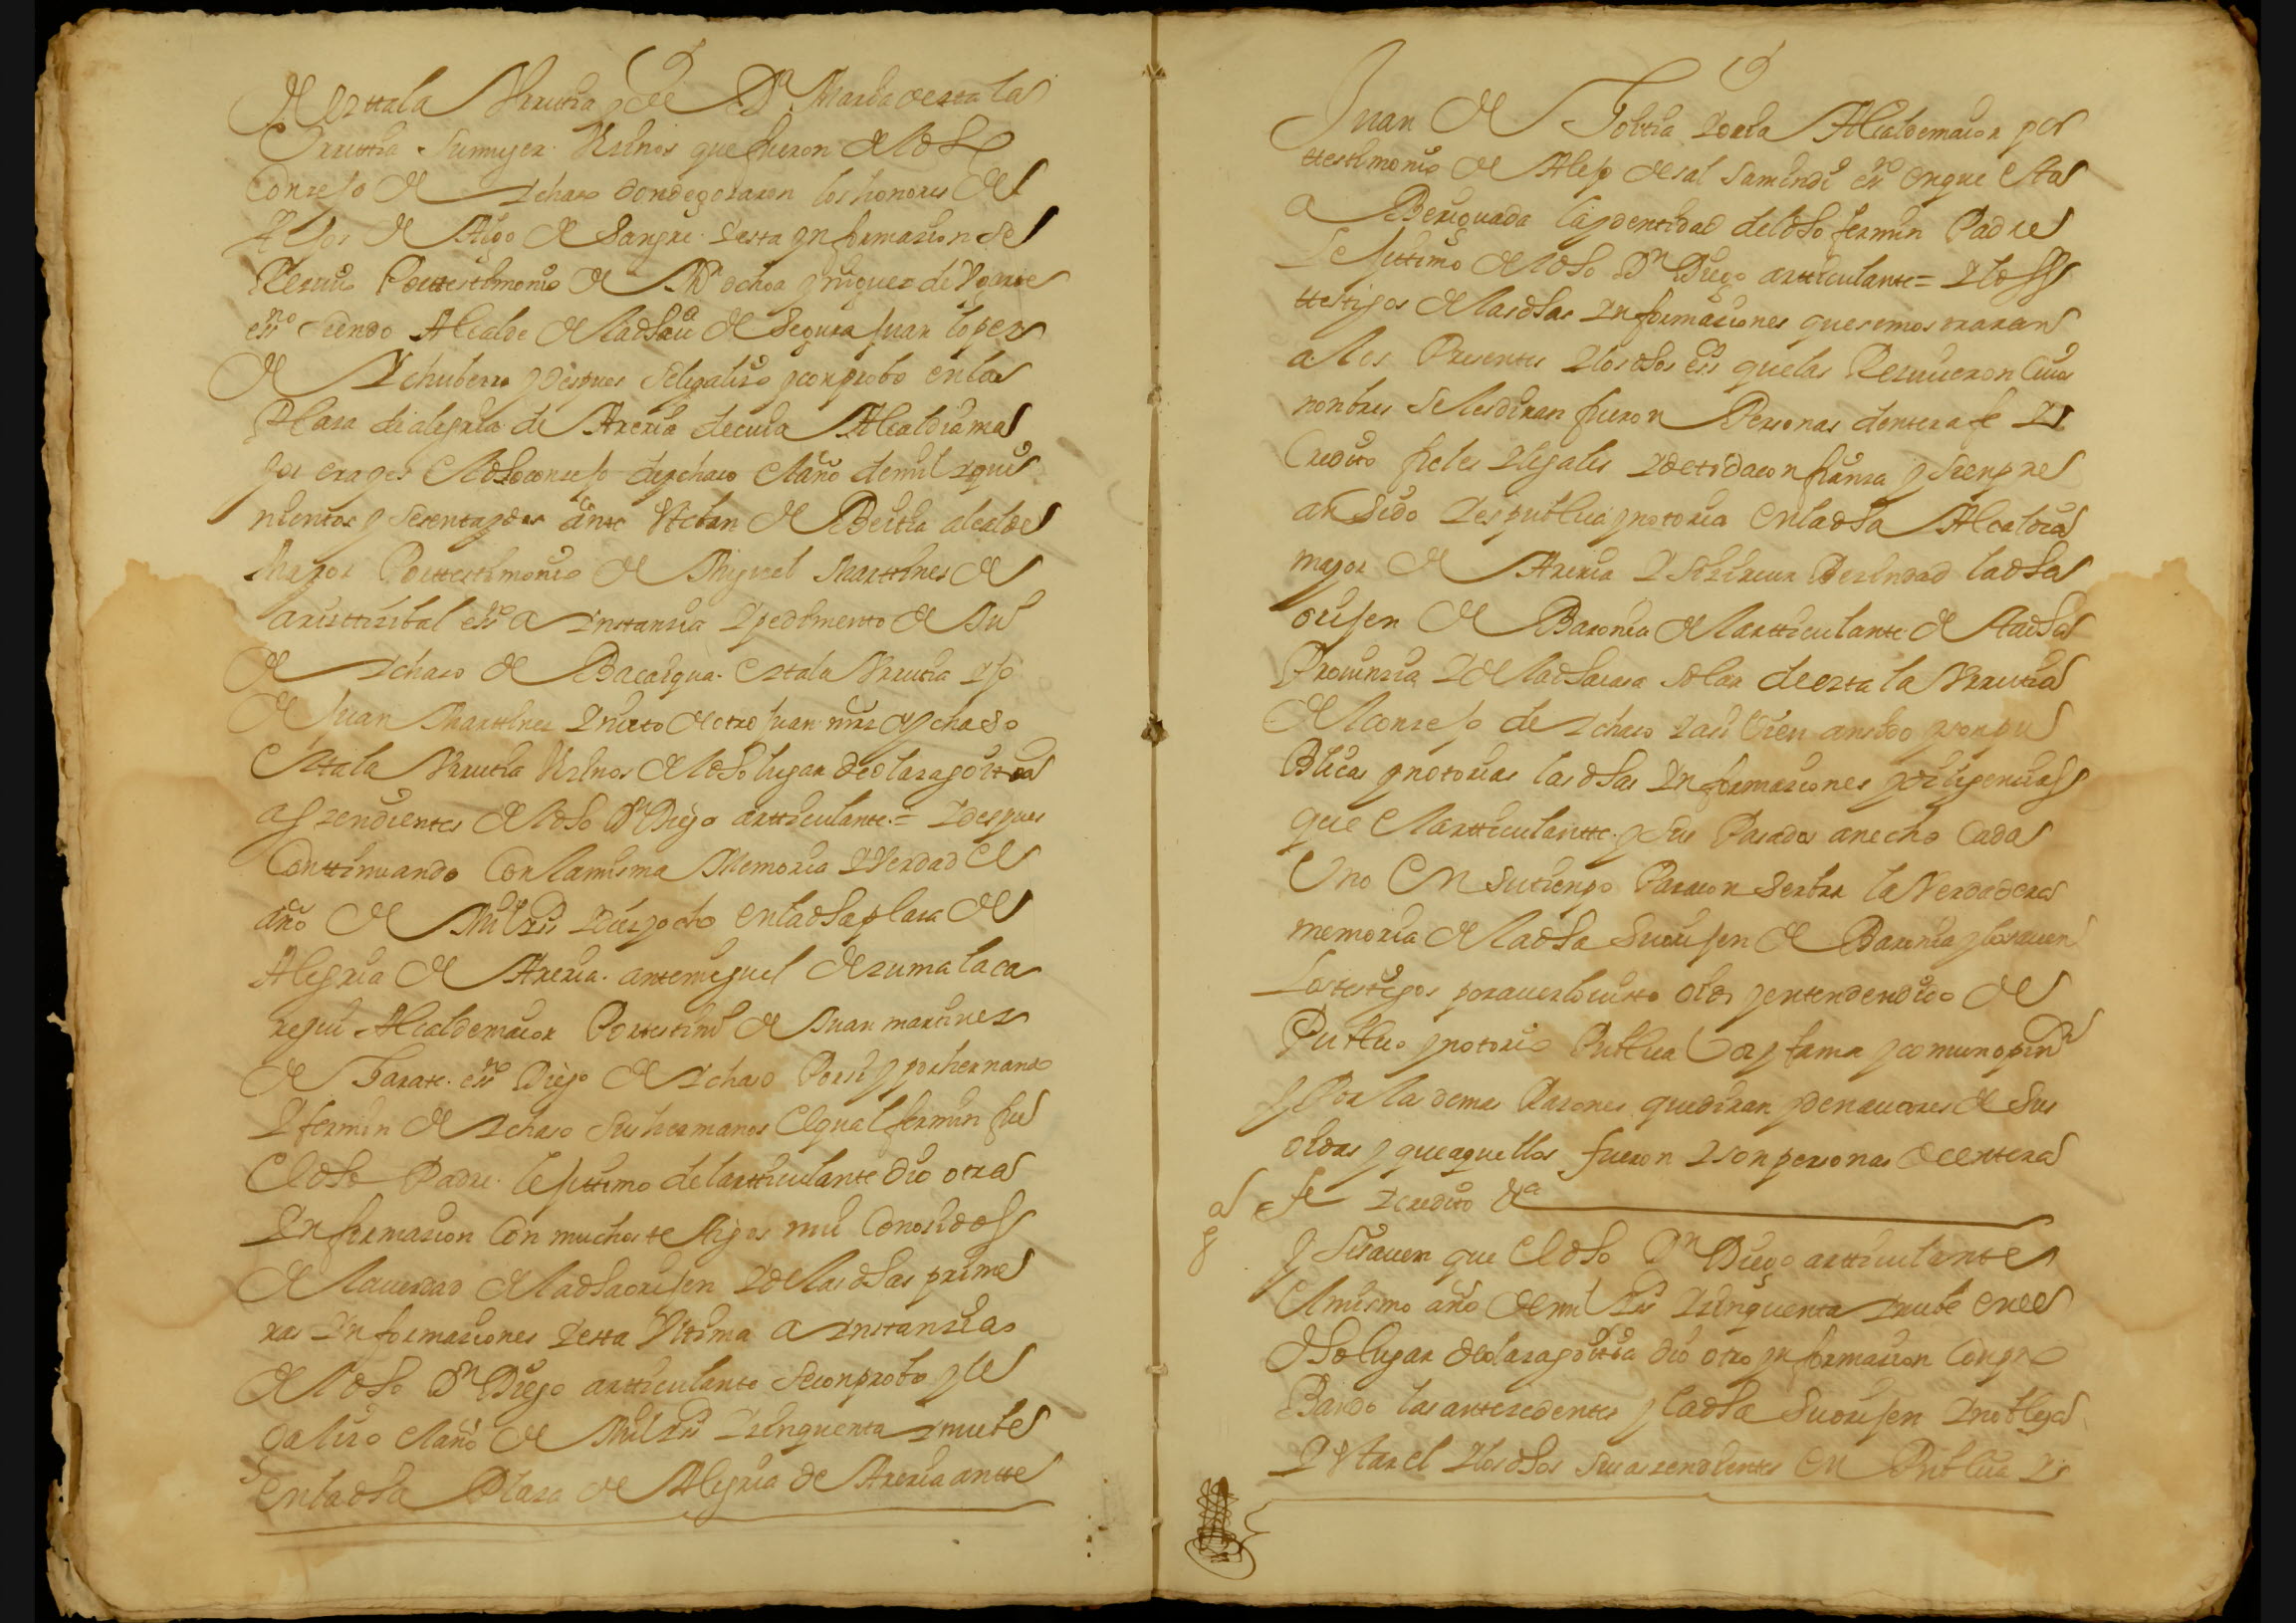 de eztala Vrrutia y de Dª Maria de eztala
Vrrutia su muger Vezinos que fueron del dho
Conzejo de Ichaso donde gozaron los honores de
hijos de Algo de Sangre y esta ynformazion se
Reziuio Por testimonio de Mn ochoa yñiguez de Vgarte
essno siendo Alcalde de la dha uª de Segura Juan lopez
de Ychuberro y despues se ligalizo y conprobo en la
Plaza de alegria de Areria de cuia Alcaldia ma
yor era y es el dho conzejo de ychaso el año de mil y qui
nientos y sesenta y dos ante esteban de Beitia alcalde
Mayor Por testimonio de Miguel Martinez de
aristizibal essno a instanzia y pedimento de Ju
de Ichaso de Bacaigua eztala Vrrutia yjo
de Juan Martinez y nieto de otro Juan mrz de ychaso
eztala Vrrutia Vezinos del dho lugar de olazagoitia
aszendientes del dho Dn Diego artticulante = y despues
Conttinuando Con la misma Memoria y Verdad el
año de Mil y diez y ocho en la dha plaza de
Alegria de Areria ante miguel de zumalaca
regui Alcalde maior Por testimº de Juan martinez
de Zarate essno Diego de Ichaso Por si y por hernando
y fermin de Ichaso sus hermanos el qual fermin fue
el dho Padre lejittimo del artticulante dio otra
ynformazion Con muchos testigos mui Conozidos
de la uerdad de la dha orijen y de las dhas prime
ras ynformaziones y esta Vltima a instanzia
del dho Dn Diego artticulante se conprobo y le
galizo el año de Mil y zinquenta y nuebe
en la dha Plaza de Alegria de Areria antte
Juan de Tobia Alcalde maior por
testtimonio de Alejo de sal samendi essno en que esta
a Beriguada la ydentidad del dho fermin Padre
Lejittimo del dho Dn Diego artticulante = y los
testigos de las dhas ynformaziones que se mostraran
a los Presentes y los dhos essnos que las Reziuieron Cuios
nonbres se les diran fueron Personas de entera fe y
Credito fieles y ligales y de toda confianza y sienpre
an sido y es publica y notoria en la dha Alcaldia
mayor de Areria y su Vezindad la dha
orijen de Baronia del artticulante de la dha
Prouinzia y de la dha casa solar de ezta la Vrrutia
del conzejo de Ichaso y asi bien an sido y son pu
Blicas y notorias las dhas ynformaziones y dilijenzias
que el artticulantte y sus Pasados an echo Cada
Vno en su tienpo Para conserbar la Verdadera
memoria de la dha su orijen de Baronia y lo sauen
Los testigos por auerlo uisto oido y entendido de
Publico y notorio Publica Voz y fama y comun opinn
y Por las demas Razones que diran y den auctores de sus
oidas y que aquellos fueron y son personas de entera
fe y credito &ª
y si sauen que el dho Dn Diego artticulante
el mismo año de mil y zinquenta y nuebe en el
dho lugar de olazagoitia dio otra ynformazion Conpro
Bando las antezedentes y la dha su orijen y nobleza
y estar el y los dhos sus aszendientes en Publica y